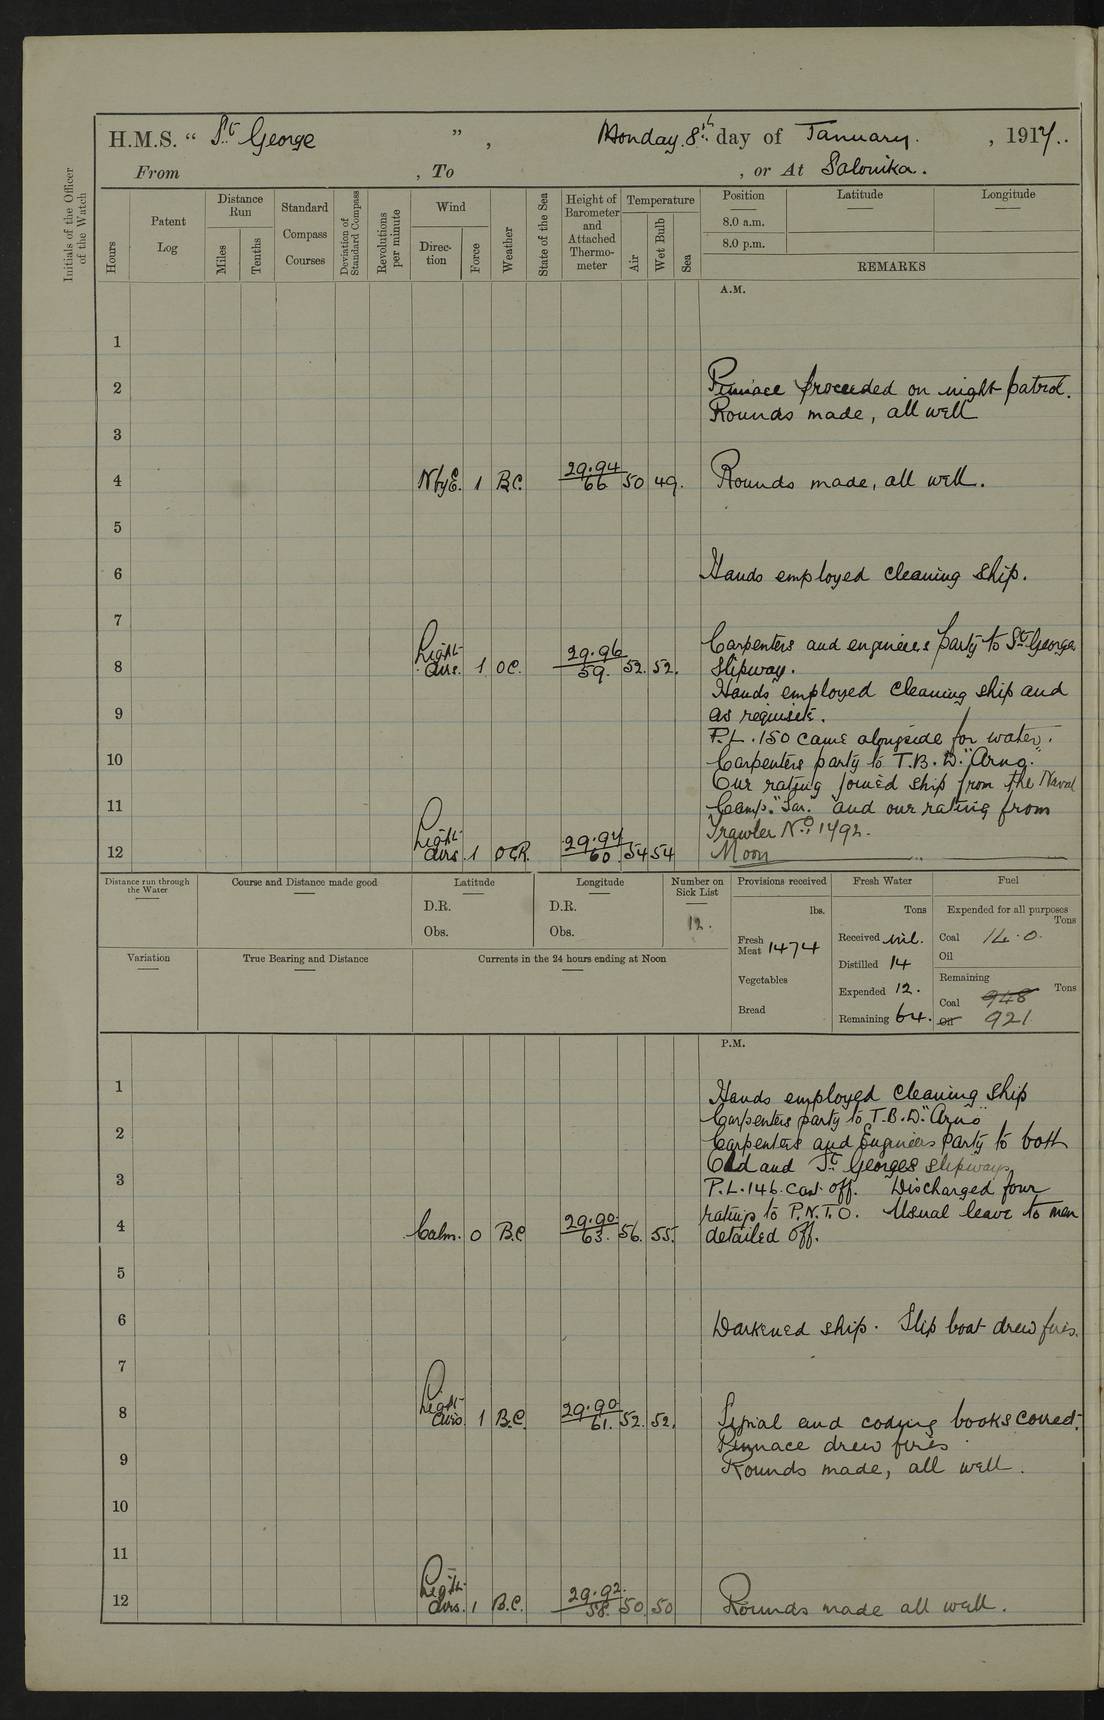 H.M.S. “ St. George ”, Monday 8th day of January, 1917.
From , To , or At Salonika.
Initials of the Officer of the Watch
Hours
Patent Log
Distance Run
Miles
Tenths
Standard Compass Courses
Deviation of Standard Compass
Revolutions per minute
Wind
Direction
Force
Weather
State of the Sea
Height of Barometer and Attached Thermometer
Temperature
Air
Wet Bulb
Sea
Position
8.0 a.m.
8.0 p.m.
Latitude
Longitude
REMARKS
A.M.
1
2 Pinnace proceeded on night patrol.
Rounds made, all well
3
4 N by E. 1 B.C. 29.94 66 50 49. Rounds made, all well.
5
6 Hands employed cleaning ship.
7
Carpenters and engineers party to St. George
8 Light airs. 1 OC. 29.96 59. 52. 52. slipway.
Hands employed cleaning ship and
9 as requisite.
P.L. 150 came alongside for water.
10 Carpenters party to T.B.D. "Arno."
rating joined ship from the Naval
11 Camp. and rating from
Trawler No. 1492.
12 Light airs 1 OCR. 29.94 60 54 54 Noon
Distance run through the Water
Course and Distance made good
Latitude
D.R.
Obs.
Longitude
D.R.
Obs.
Number on Sick List
12.
Provisions received
lbs.
Fresh Meat 1474
Vegetables
Bread
Fresh Water
Tons
Received nil.
Distilled 14
Expended 12.
Remaining 64.
Fuel
Expended for all purposes
Tons
Coal 14.0.
Oil
Remaining
Tons
Coal 948
Oil 921
Variation
True Bearing and Distance
Currents in the 24 hours ending at Noon
P.M.
1 Hands employed cleaning ship
Carpenters party to T.B.D. "Arno"
2 Carpenters and Engineers Party to both
Old and St. Georges slipways
3 P.L. 146. cast off. Discharged four
ratings to P.N.T.O. Usual leave to men
4 Calm. 0 B.C 29.90 63. 56. 55. detailed off.
5
6 Darkened ship. Slip boat drew fires.
7
8 Light airs. 1 B.C. 29.90 61. 52. 52. Signal and coding books corred.
Pinnace drew fires
9 Rounds made, all well.
10
11
12 Light airs. 1 B.C. 29.92. 58. 50 50 Rounds made all well.